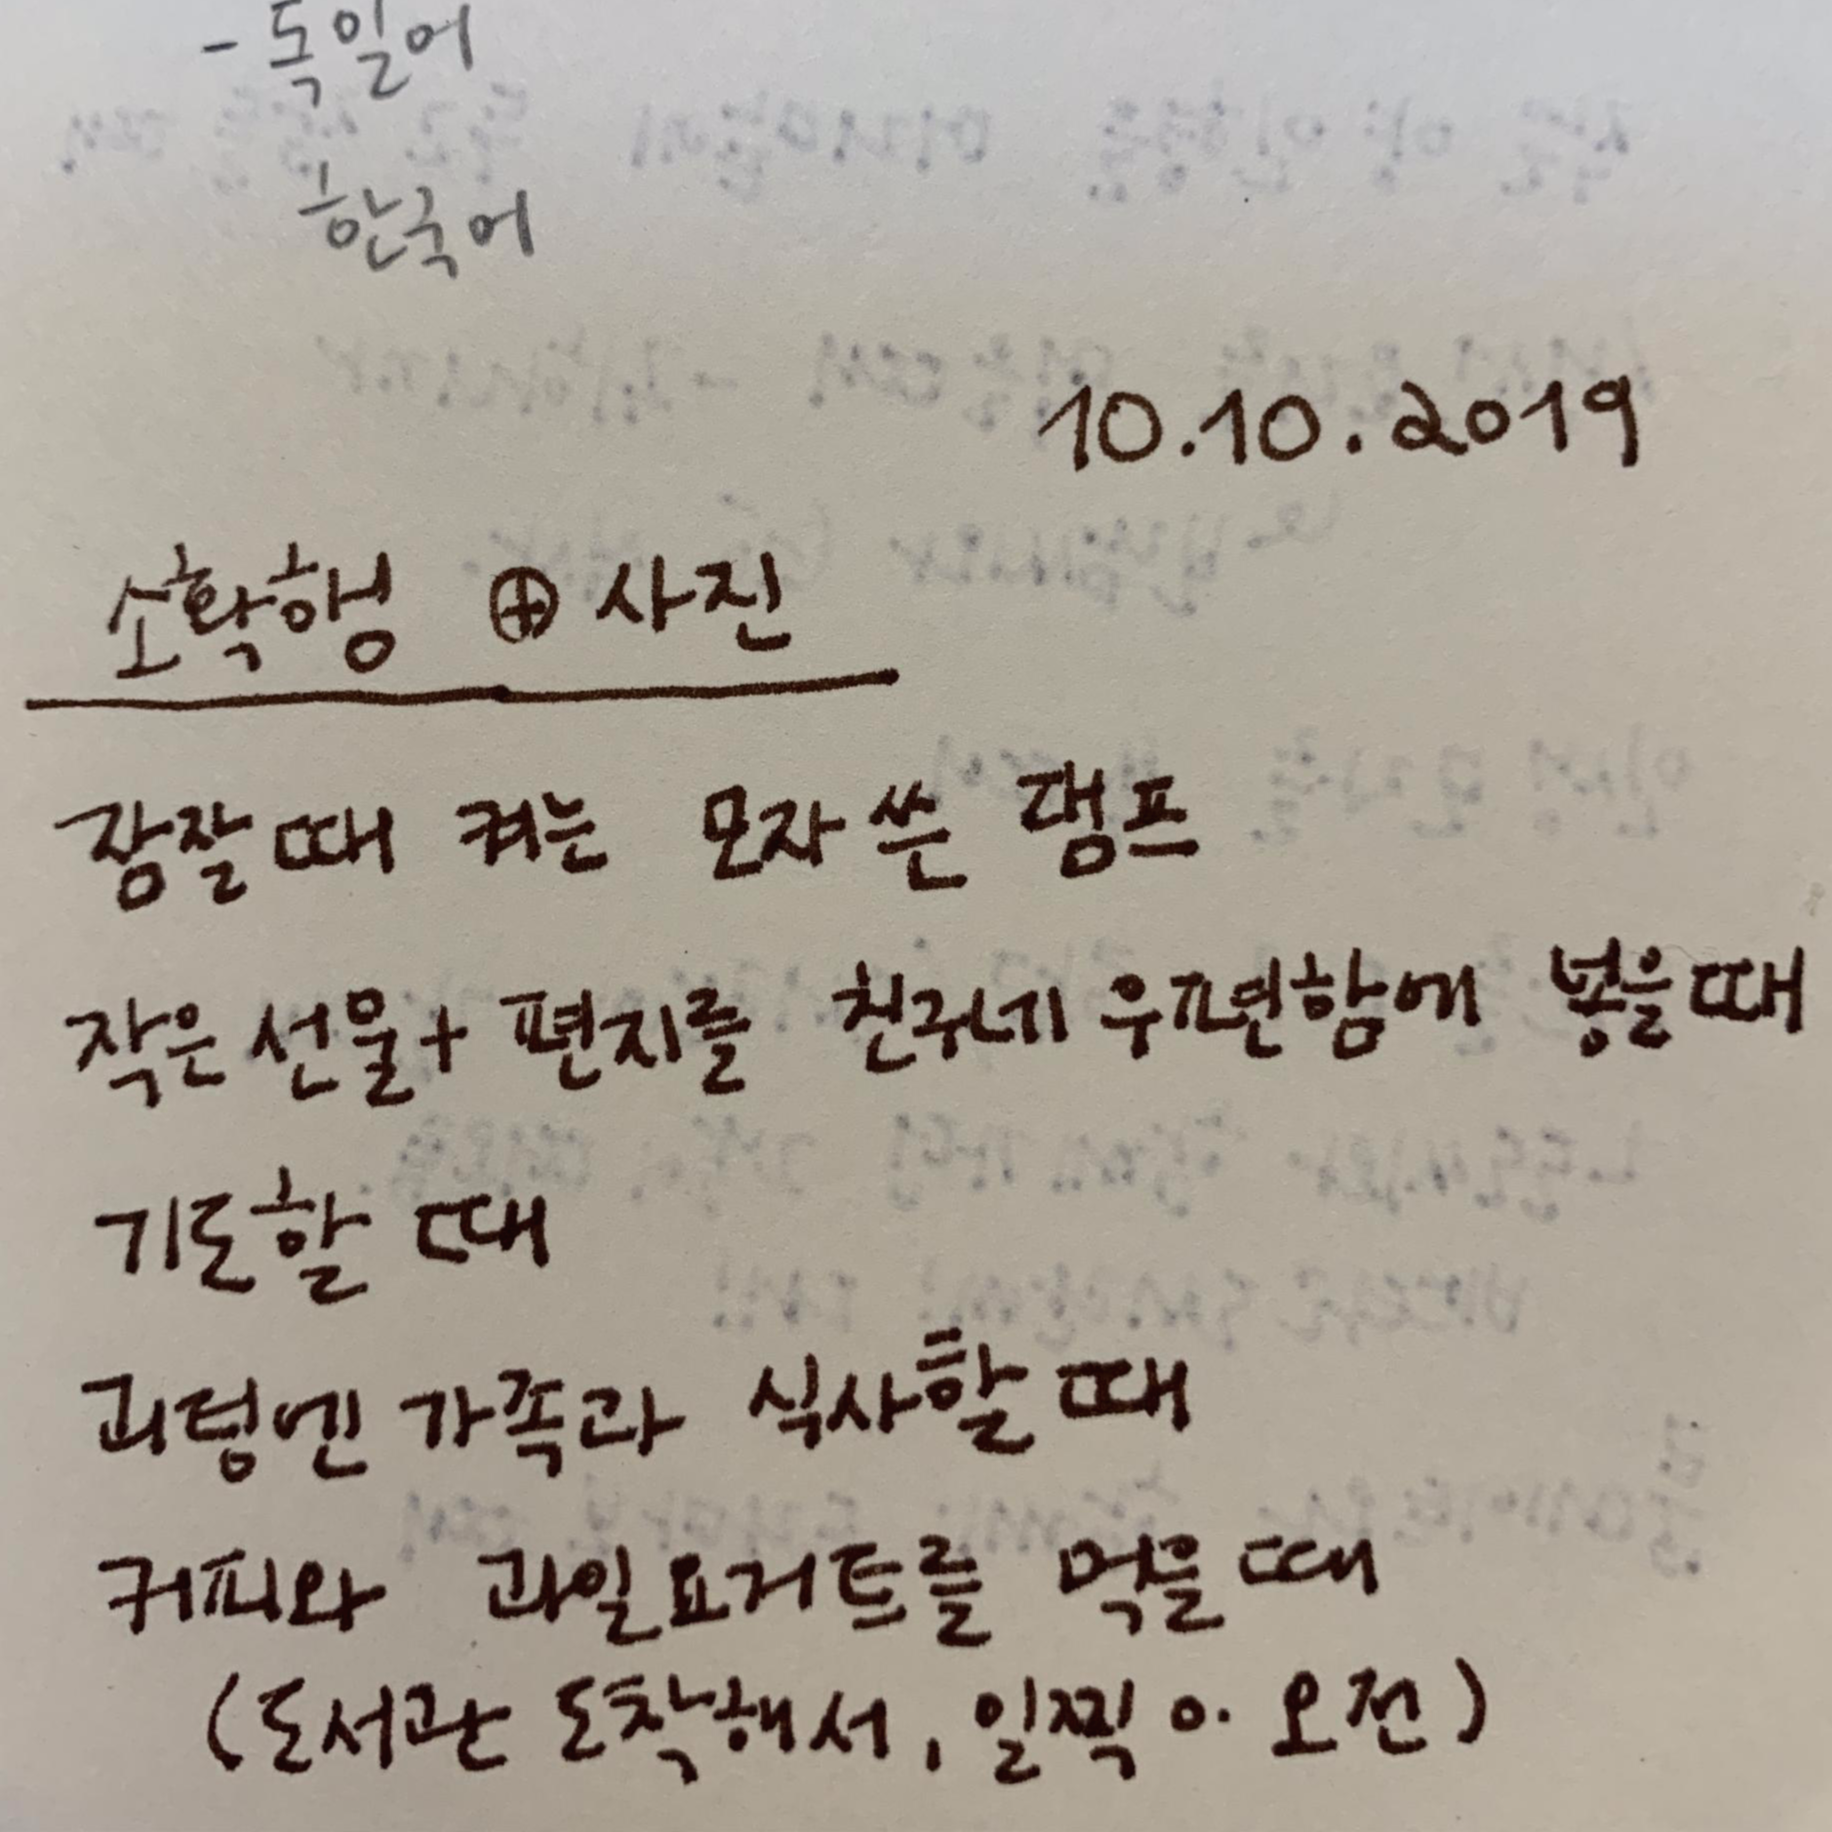 - 독일어
한국어
10.10.2019
소확행 ⊕ 사진
잠잘때 켜는 모자 쓴 램프
작은 선물+ 편지를 친구네 우편함에 넣을때
기도할 때
괴팅엔 가족과 식사할 때
커피와 과일요거트를 먹을 때
(도서관 도착해서, 일찍 오전)